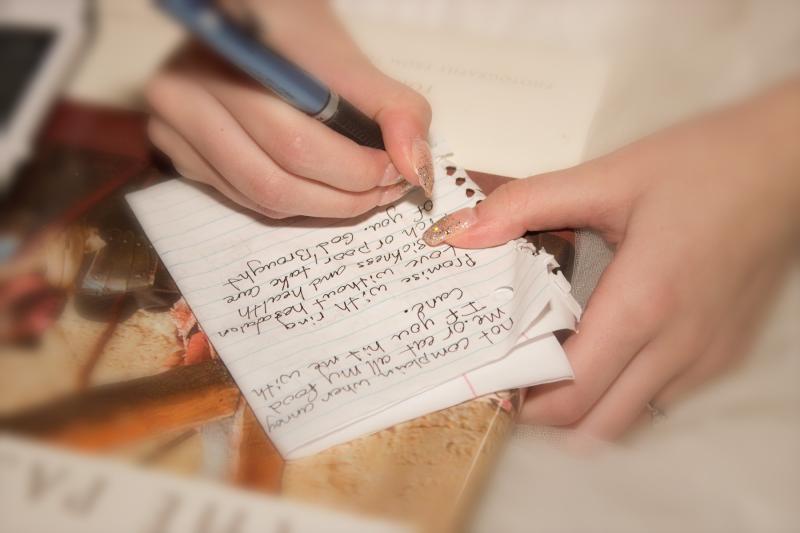 not complain when annoy
me. Or eat all my food
If you hit me with
cane.
Promise with ring
Love without hesitation
sickness and health
ich or poor! take care
of you. God Brought
PHOTOGRAPHY FROM
THE PA